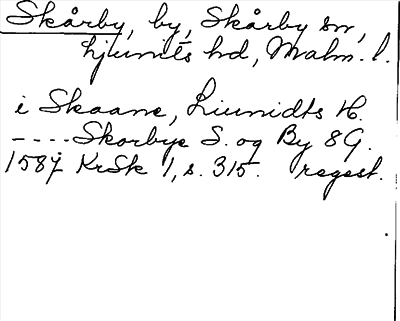 Skårby, by, Skårby sn,
Ljunits hd, Malm. l.
i Skaane, Liunidts H.
---- Skorbye S. og By 8 G.
1587 KrSk 1, s. 315. regest.